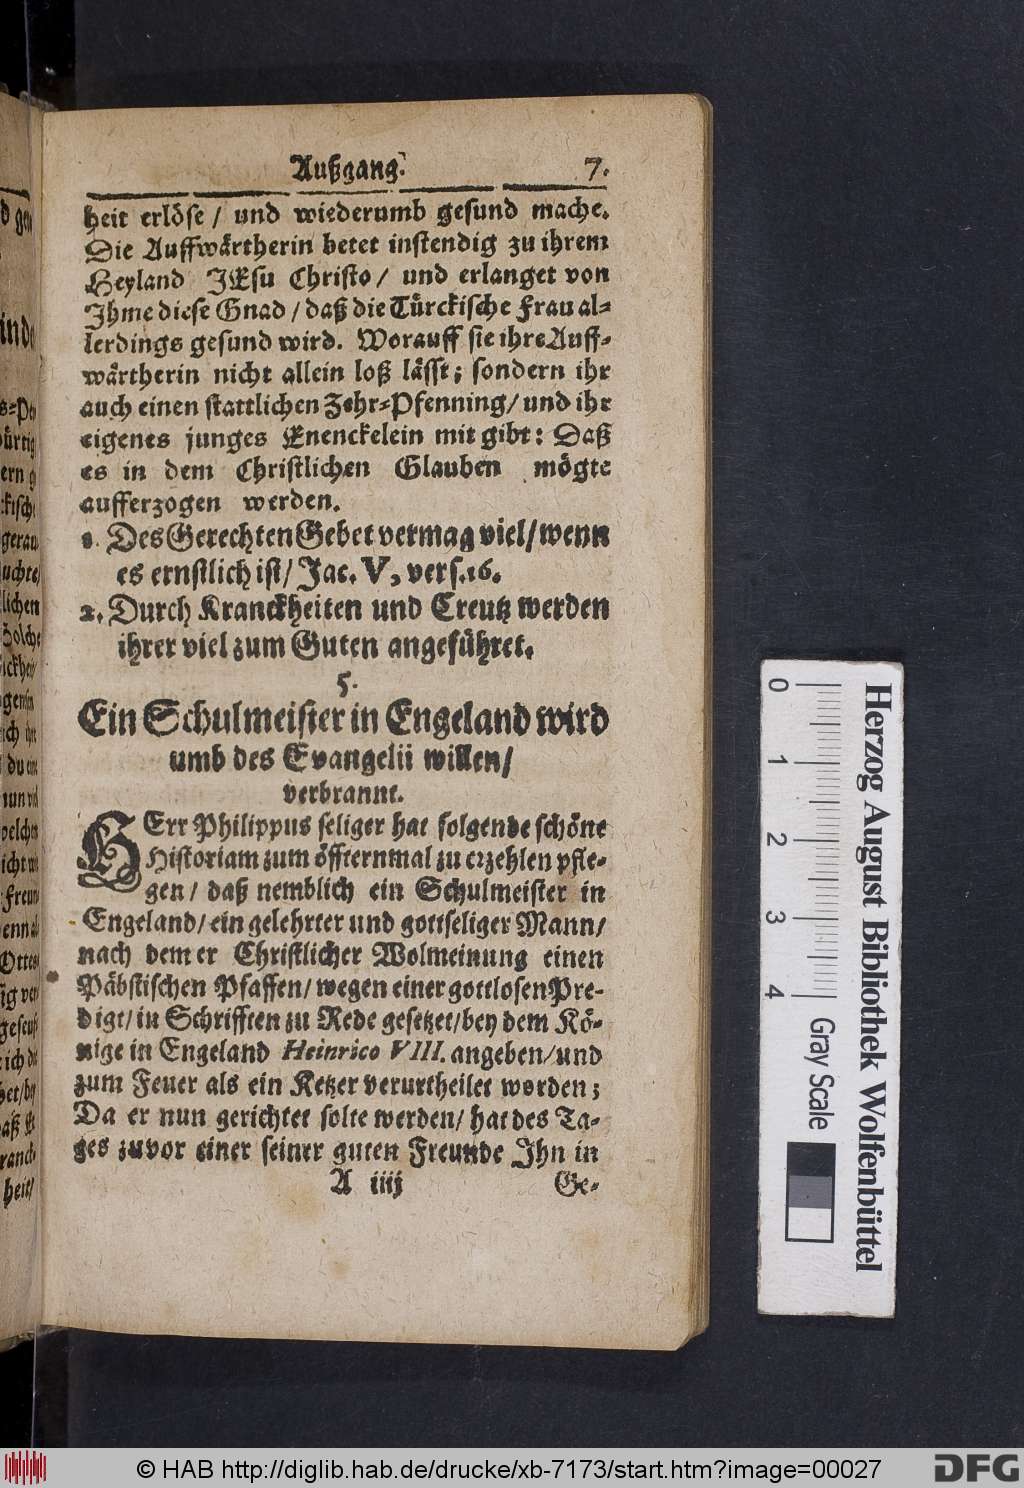 Außgang. 7.
heit erlöse / und wiederumb gesund mache.
Die Auffwärtherin betet instendig zu ihrem
Heyland JEsu Christo / und erlanget von
Ihme diese Gnad / daß die Türckische Frau al-
lerdings gesund wird. Worauff sie ihre Auff-
wärtherin nicht allein loß lässt; sondern ihr
auch einen stattlichen Zehr-Pfenning / und ihr
eigenes junges Enenckelein mit gibt: Daß
es in dem Christlichen Glauben mögte
aufferzogen werden.
1. Des Gerechten Gebet vermag viel / wenn
es ernstlich ist / Jac. V, vers. 16.
2. Durch Kranckheiten und Creutz werden
ihrer viel zum Guten angeführet.
5.
Ein Schulmeister in Engeland wird
umb des Evangelii willen /
verbrannt.
HErr Philippus seliger hat folgende schöne
Historiam zum öffternmal zu erzehlen pfle-
gen / daß nemblich ein Schulmeister in
Engeland / ein gelehrter und gottseliger Mann /
nach dem er Christlicher Wolmeinung einen
Päbstischen Pfaffen / wegen einer gottlosen Pre-
digt / in Schrifften zu Rede gesetzet / bey dem Kö-
nige in Engeland Heinrico VIII. angeben / und
zum Feuer als ein Ketzer verurtheilet worden;
Da er nun gerichtet solte werden / hat des Ta-
ges zuvor einer seiner guten Freunde Ihn in
A iiij Ge-
Herzog August Bibliothek Wolfenbüttel
0 1 2 3 4 Gray Scale
© HAB http://diglib.hab.de/drucke/xb-7173/start.htm?image=00027
DFG